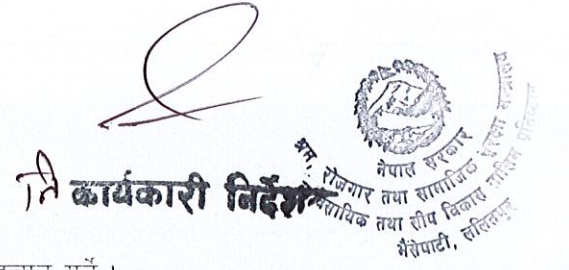 नि कार्यकारी निर्देशक
नेपाल सरकार
श्रम, रोजगार तथा सामाजिक सुरक्षा मन्त्रालय
व्यावसायिक तथा सीप विकास तालिम प्रतिष्ठान
भैसेपाटी, ललितपुर